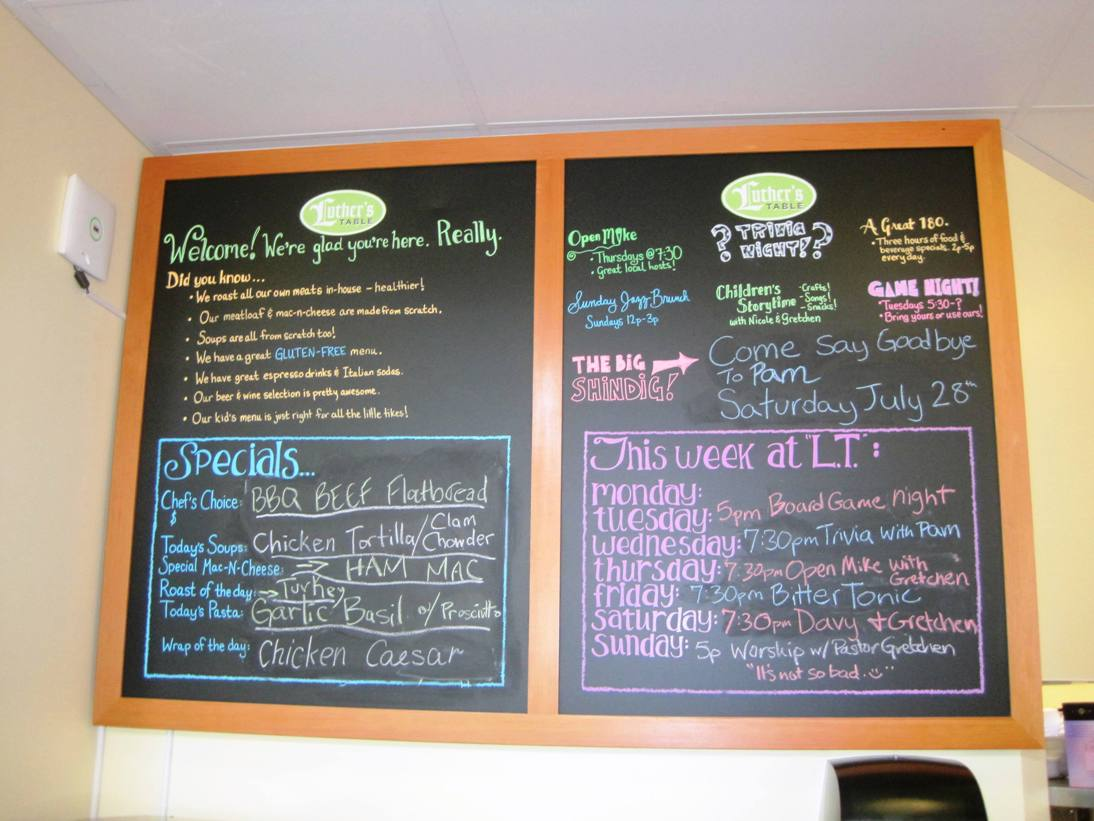 Luther's
TABLE
Welcome! We're glad you're here. Really.
Did you know...
• We roast all our own meats in-house - healthier!
• Our meatloaf & mac-n-cheese are made from scratch.
• Soups are all from scratch too!
• We have a great GLUTEN-FREE menu.
• We have great espresso drinks & Italian sodas.
• Our beer & wine selection is pretty awesome.
• Our kid's menu is just right for all the little tikes!
Specials...
Chef's Choice: BBQ BEEF Flatbread
$
Today's Soups: Chicken Tortilla/Clam Chowder
Special Mac-N-Cheese: HAM MAC
Roast of the day: Turkey
Today's Pasta: Garlic Basil w/ Prosciutto
Wrap of the day: Chicken Caesar
Luther's
TABLE
Open Mike
• Thursdays @ 7:30
• Great local hosts!
? TRIVIA NIGHT! ?
A Great 180.
• Three hours of food &
beverage specials. 2p-5p
every day.
Sunday Jazz Brunch
Sundays 12p-3p
Children's
Storytime
- Crafts!
- Songs!
- Snacks!
with Nicole & Gretchen
GAME NIGHT!
• Tuesdays 5:30-?
• Bring yours or use ours!
THE BIG
SHINDIG!
Come Say Goodbye
To Pam
Saturday July 28th
This week at "L.T.":
monday:
tuesday: 5pm Board Game night
wednesday: 7:30pm Trivia with Pam
thursday: 7:30pm Open Mike with Gretchen
friday: 7:30pm Bitter Tonic
saturday: 7:30pm Davy + Gretchen
sunday: 5p Worship w/ Pastor Gretchen
"It's not so bad."